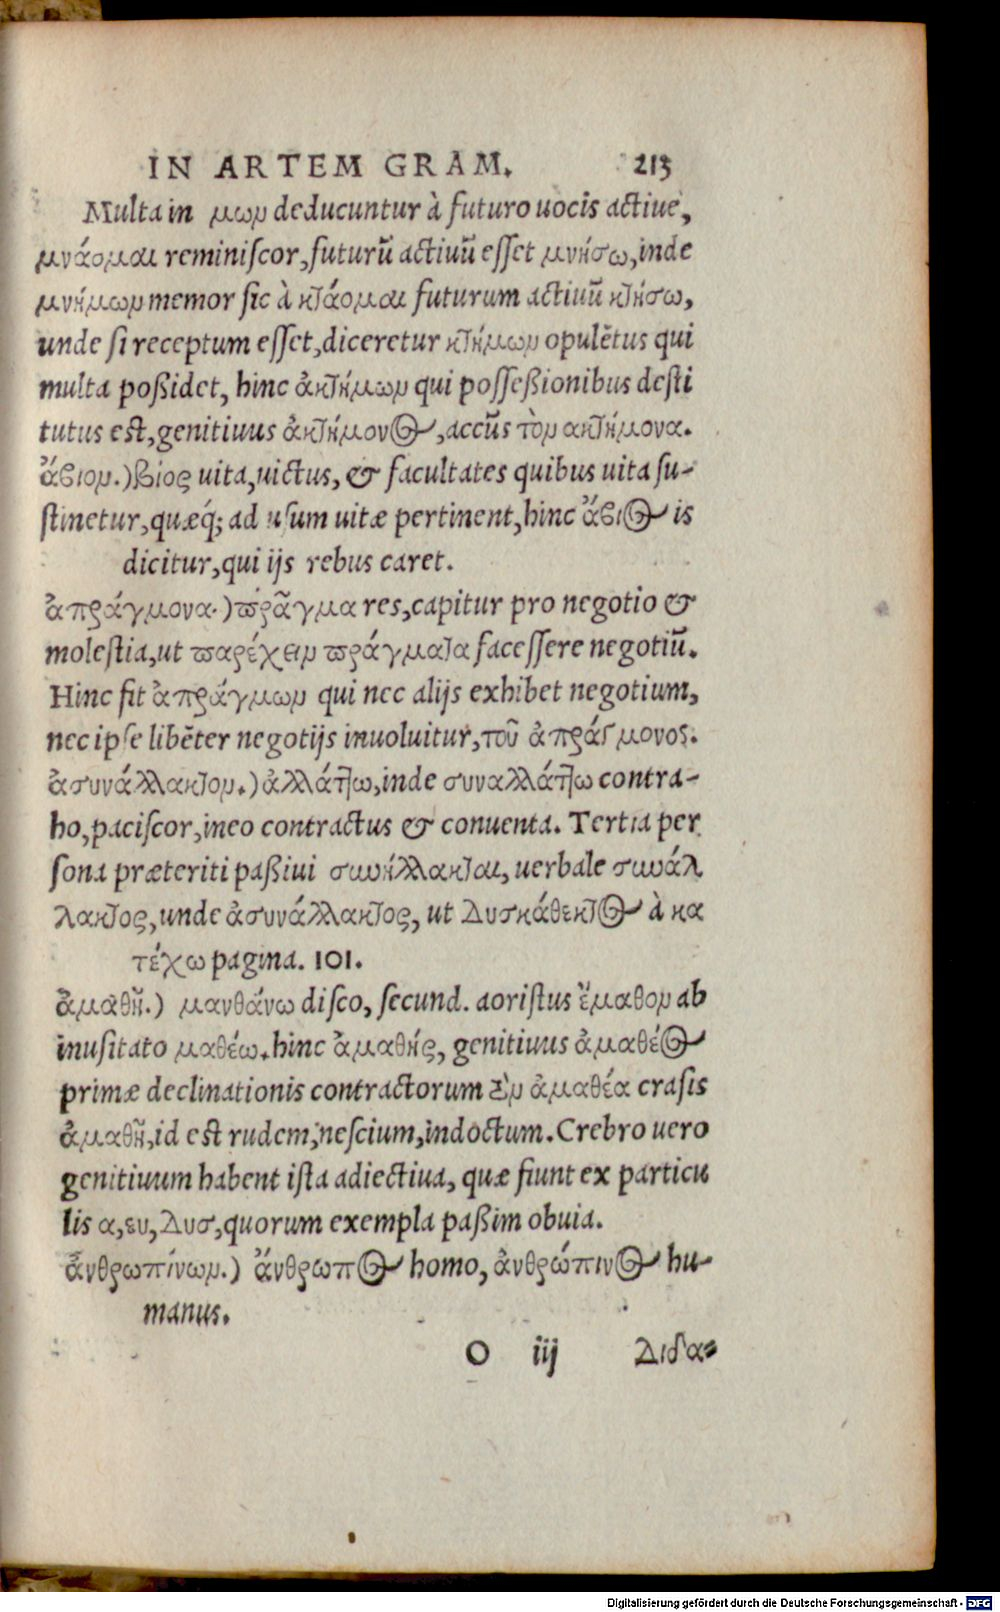 IN ARTEM GRAM. 213
Multa in μων deducuntur à futuro uocis actiuę,
μνάομαι reminiscor, futurũ actiuũ esset μνήσω, inde
μνήμων memor sic à κτάομαι futurum actiuũ κτήσω,
unde si receptum esset, diceretur κτήμων opulẽtus qui
multa poßidet, hinc ἀκτήμων qui possessionibus desti
tutus est, genitiuus ἀκτήμονος, accũs τὸν ακτήμονα.
ἄβιον.) βίος uita, uictus, & facultates quibus uita su-
stinetur, quæq́; ad usum uitæ pertinent, hinc ἄβιος is
dicitur, qui ijs rebus caret.
ἀπράγμονα.) πρᾶγμα res, capitur pro negotio &
molestia, ut παρέχειν πράγματα facessere negotiũ.
Hinc fit ἀπράγμων qui nec alijs exhibet negotium,
nec ipse libẽter negotijs inuoluitur, τοῦ ἀπράγμονος.
ἀσυνάλλακτον.) ἀλλάττω, inde συναλλάττω contra-
ho, paciscor, ineo contractus & conuenta. Tertia per
sona præteriti paßiui συνήλλακται, uerbale συνάλ
λακτος, unde ἀσυνάλλακτος, ut Δυσκάθεκτος à κα
τέχω pagina. 101.
ἀμαθῆ.) μανθάνω disco, secund. aoristus ἔμαθον ab
inusitato μαθέω. hinc ἀμαθής, genitiuus ἀμαθέος
primæ declinationis contractorum τὸν ἀμαθέα crasis
ἀμαθῆ, id est rudem, nescium, indoctum. Crebro uero
genitiuum habent ista adiectiua, quæ fiunt ex particu
lis α, ευ, Δυσ, quorum exempla paßim obuia.
ἀνθρωπίνων.) ἄνθρωπος homo, ἀνθρώπινος hu-
manus.
O iij Διδα-
Digitalisierung gefördert durch die Deutsche Forschungsgemeinschaft - DFG